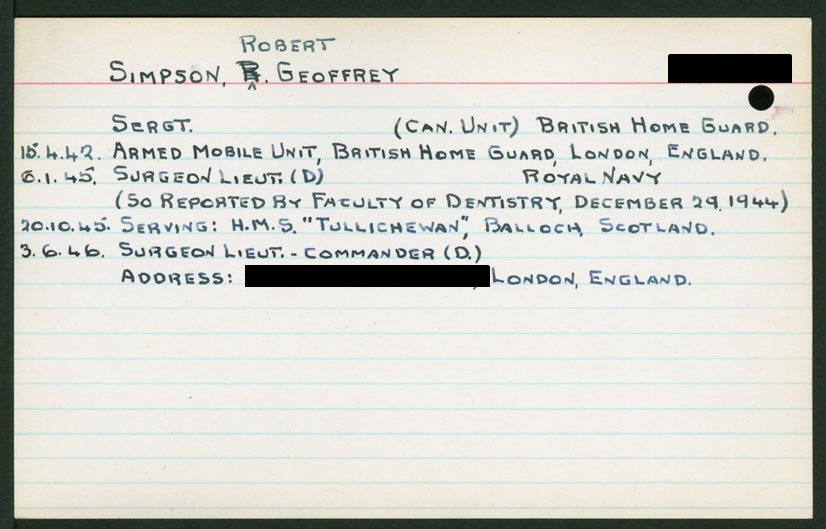 ROBERT
SIMPSON, R. GEOFFREY
SERGT. (CAN. UNIT) BRITISH HOME GUARD.
15.4.42. ARMED MOBILE UNIT, BRITISH HOME GUARD, LONDON, ENGLAND.
6.1.45. SURGEON LIEUT. (D) ROYAL NAVY
(SO REPORTED BY FACULTY OF DENTISTRY, DECEMBER 29, 1944)
20.10.45. SERVING: H.M.S. "TULLICHEWAN", BALLOCH, SCOTLAND.
3.6.46. SURGEON LIEUT.-COMMANDER (D.)
ADDRESS: , LONDON, ENGLAND.